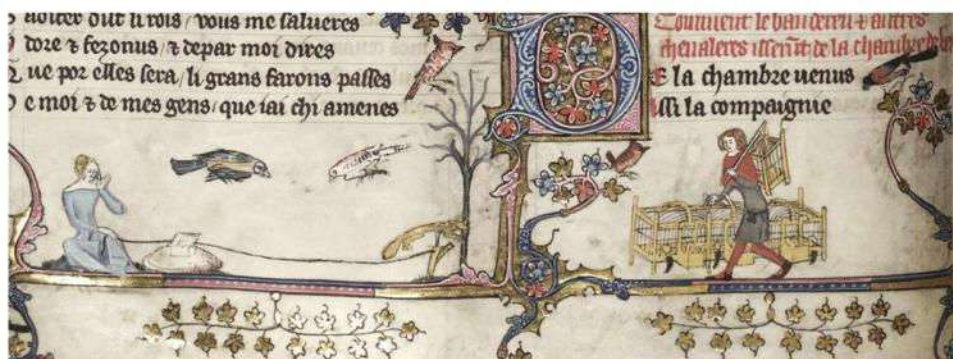 uoiter dift li rois / vous me salueres
dore & fezonus / & depar moi dires
Que por elles sera / li grans farons passes
De moi & de mes gens / que iai chi amenes
Comment le
cheualeres issent de la chambre
De la chambre uenus
issi la compaignie